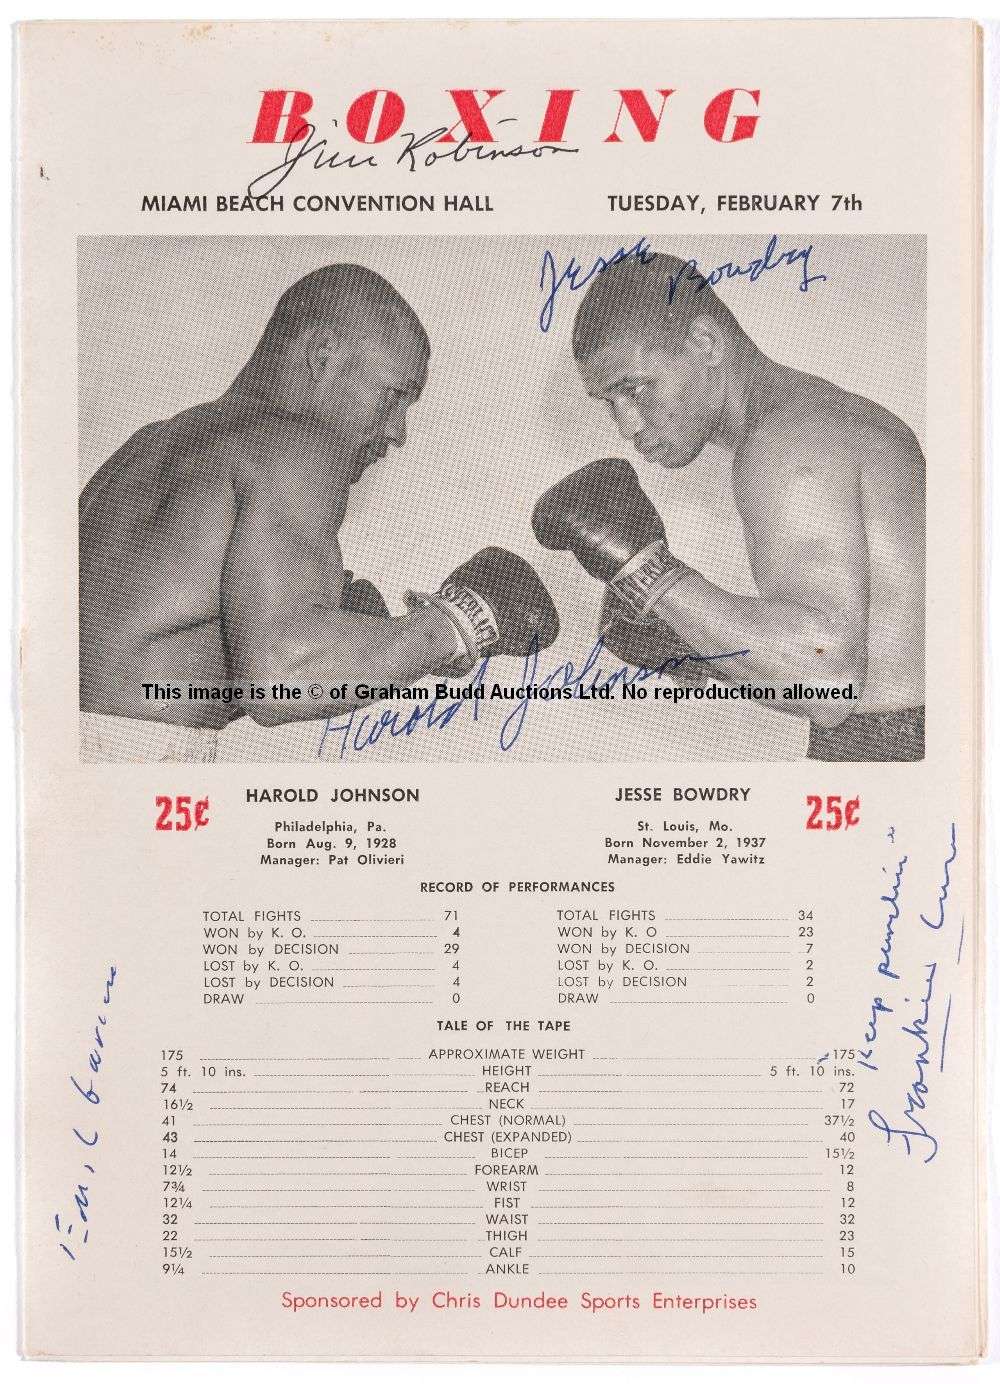 BOXING
Jim Robinson
MIAMI BEACH CONVENTION HALL TUESDAY, FEBRUARY 7th
Jesse Bowdry
EVERLAST
EVERLAST
Harold Johnson
This image is the © of Graham Budd Auctions Ltd. No reproduction allowed.
25¢ HAROLD JOHNSON JESSE BOWDRY 25¢
Philadelphia, Pa. St. Louis, Mo.
Born Aug. 9, 1928 Born November 2, 1937
Manager: Pat Olivieri Manager: Eddie Yawitz
RECORD OF PERFORMANCES
TOTAL FIGHTS 71 TOTAL FIGHTS 34
WON by K. O. 4 WON by K. O 23
WON by DECISION 29 WON by DECISION 7
LOST by K. O. 4 LOST by K. O. 2
LOST by DECISION 4 LOST by DECISION 2
DRAW 0 DRAW 0
TALE OF THE TAPE
175 APPROXIMATE WEIGHT 175
5 ft. 10 ins. HEIGHT 5 ft. 10 ins.
74 REACH 72
16½ NECK 17
41 CHEST (NORMAL) 37½
43 CHEST (EXPANDED) 40
14 BICEP 15½
12½ FOREARM 12
7¾ WRIST 8
12¼ FIST 12
32 WAIST 32
22 THIGH 23
15½ CALF 15
9¼ ANKLE 10
Keep punchin
Frankie
Sponsored by Chris Dundee Sports Enterprises